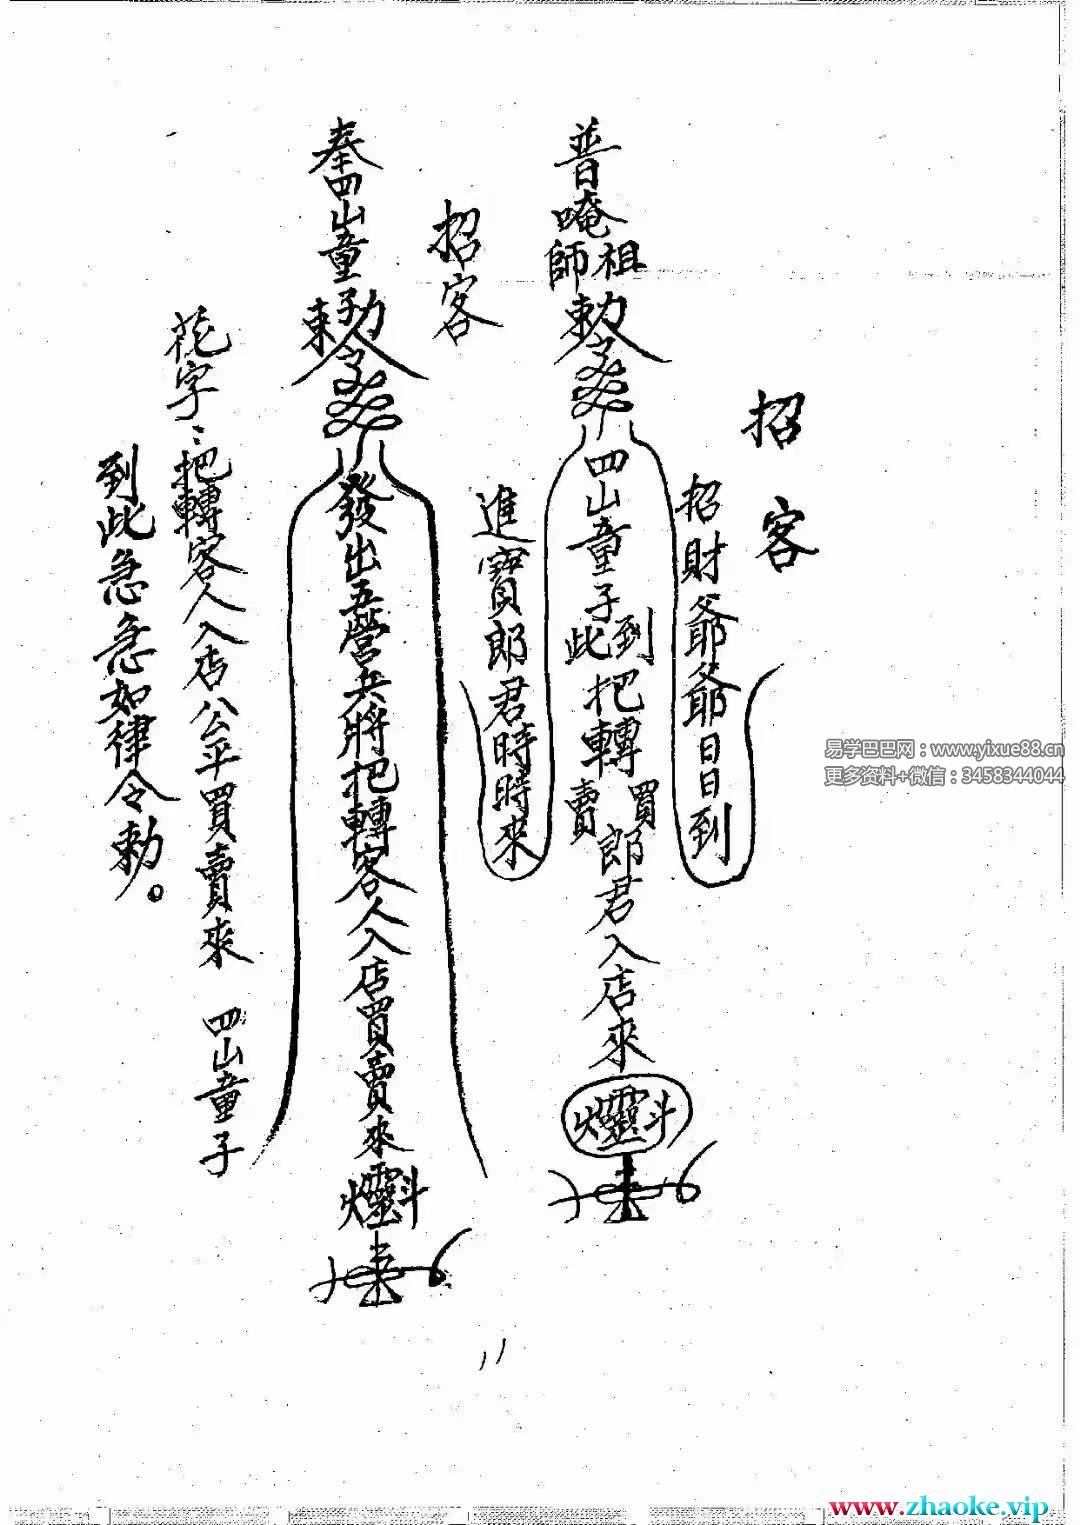 招客
招財爺爺日日到
普唵祖師勅
四山童子到此把轉買賣郎君入店來
斗
進寶郎君時時來
招客
奉四山童子勅
發出五營兵將把轉客人入店買賣來
斗
花字:把轉客人入店公平買賣來 四山童子
到此急急如律令勅。
11
易学巴巴网:www.yixue88.cn
更多资料+微信:3458344044
www.zhaoke.vip